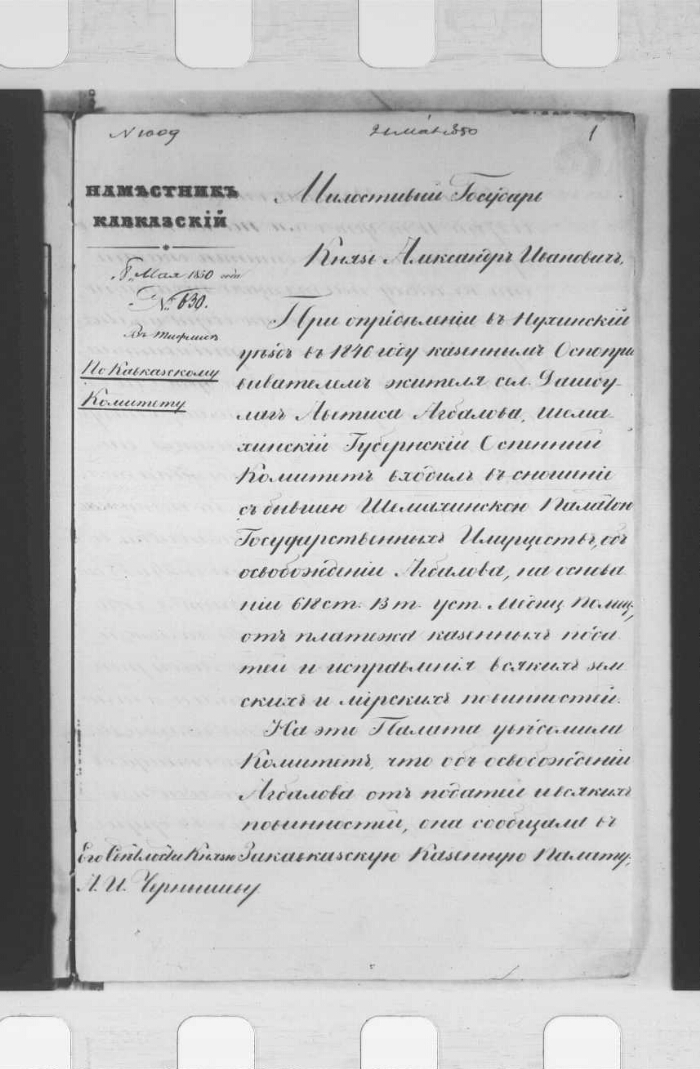 N 1009
21 мая 1850
1
НАМѢСТНИКЪ
КАВКАЗСКІЙ
8 Мая 1850 года
№ 630.
Въ Тифлисѣ
По Кавказскому
Комитету
Милостивый Государь
Князь Александръ Ивановичъ,
При опредѣленіи въ Нухинскій
уѣздъ въ 1846 году казеннымъ Оспопри
вивателемъ жителя сел. Дашбу
лагъ Агбалова, Шема
хинскій Губернскій Оспенный
Комитетъ входилъ въ сношеніе
съ бывшею Шемахинскою Палатою
Государственныхъ Имуществъ, объ
освобожденіи Агбалова, на основа
ніи 618 ст. 13 т. уст. Медиц. Полиц.,
отъ платежа казенныхъ пода
тей и исправленія всякихъ зем
скихъ и мірскихъ повинностей.
На это Палата увѣдомила
Комитетъ, что объ освобожденіи
Агбалова отъ податей и всякихъ
повинностей, она сообщала въ
Закавказскую Казенную Палату,
Его Свѣтлости Князю
А. И. Чернышеву